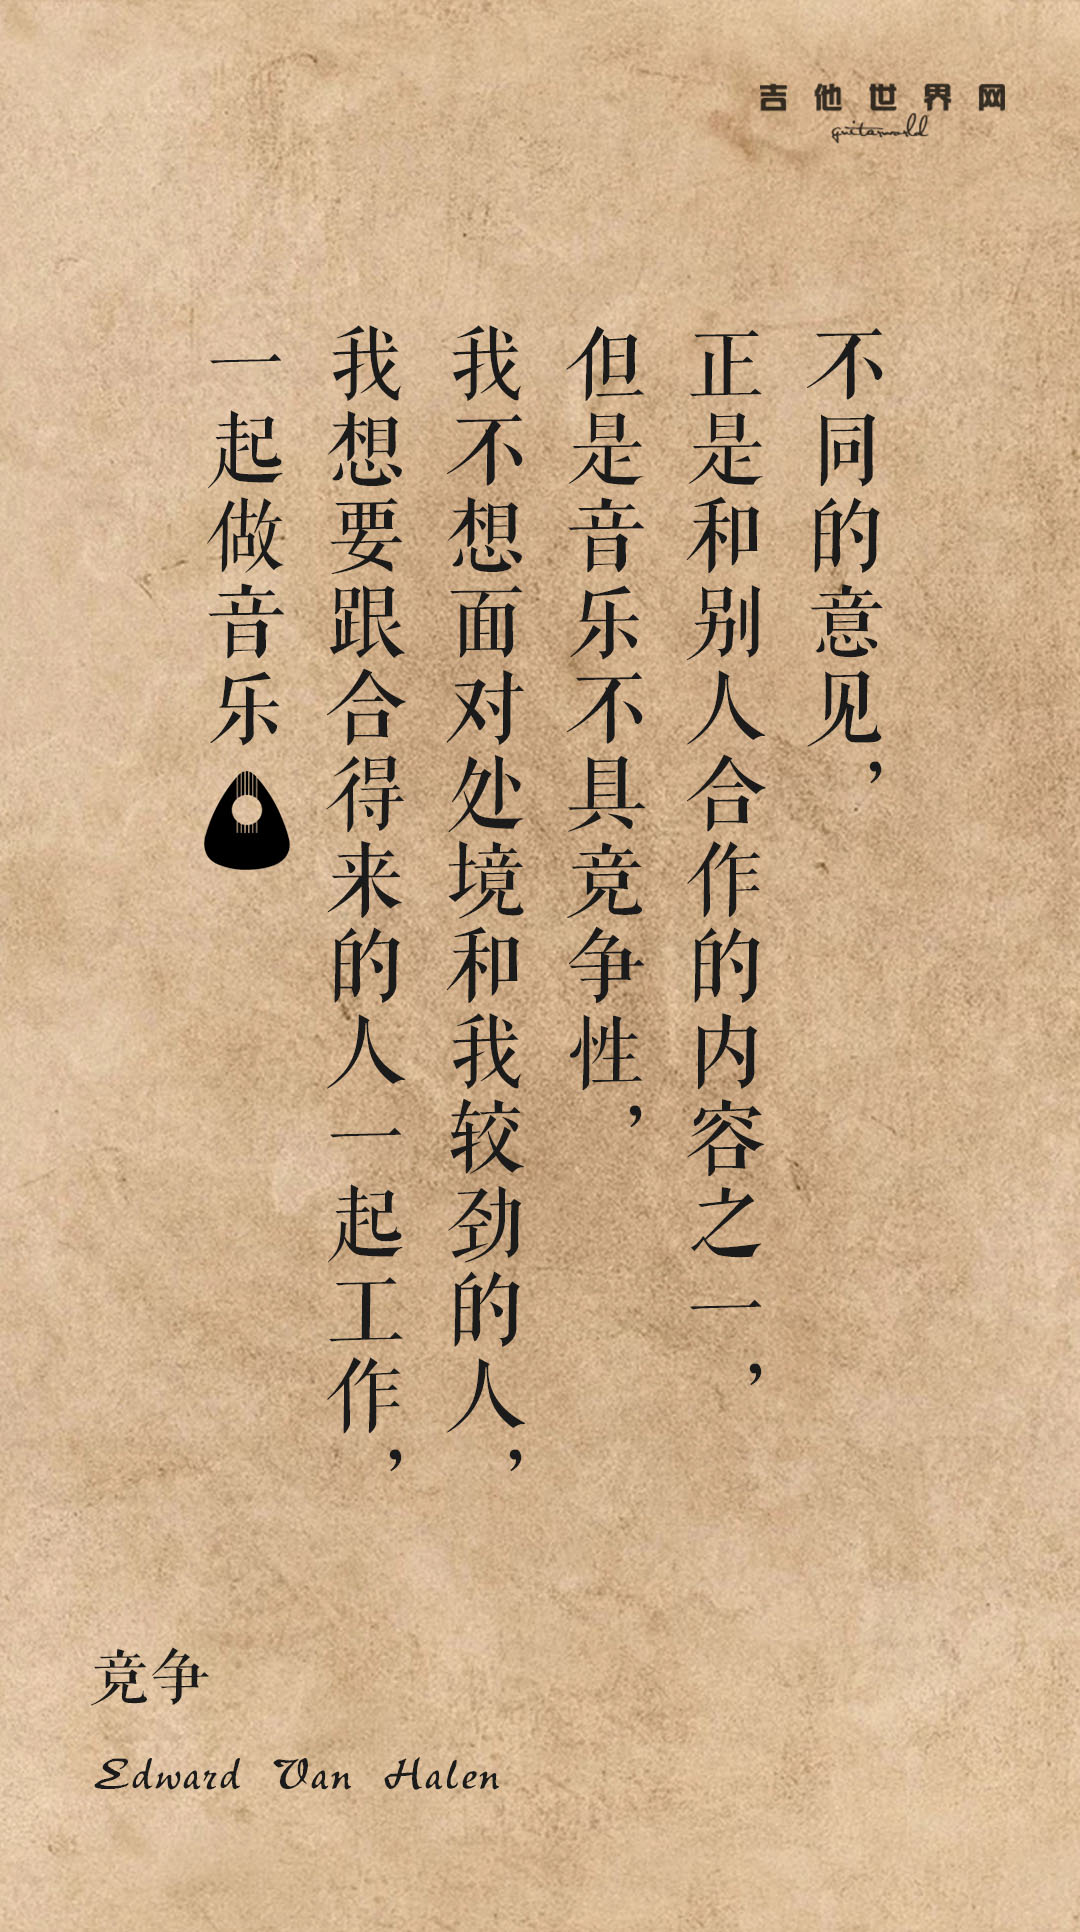 吉他世界网
guitarworld
不同的意见，
正是和别人合作的内容之一，
但是音乐不具竞争性，
我不想面对处境和我较劲的人，
我想要跟合得来的人一起工作，
一起做音乐
竞争
Edward Van Halen